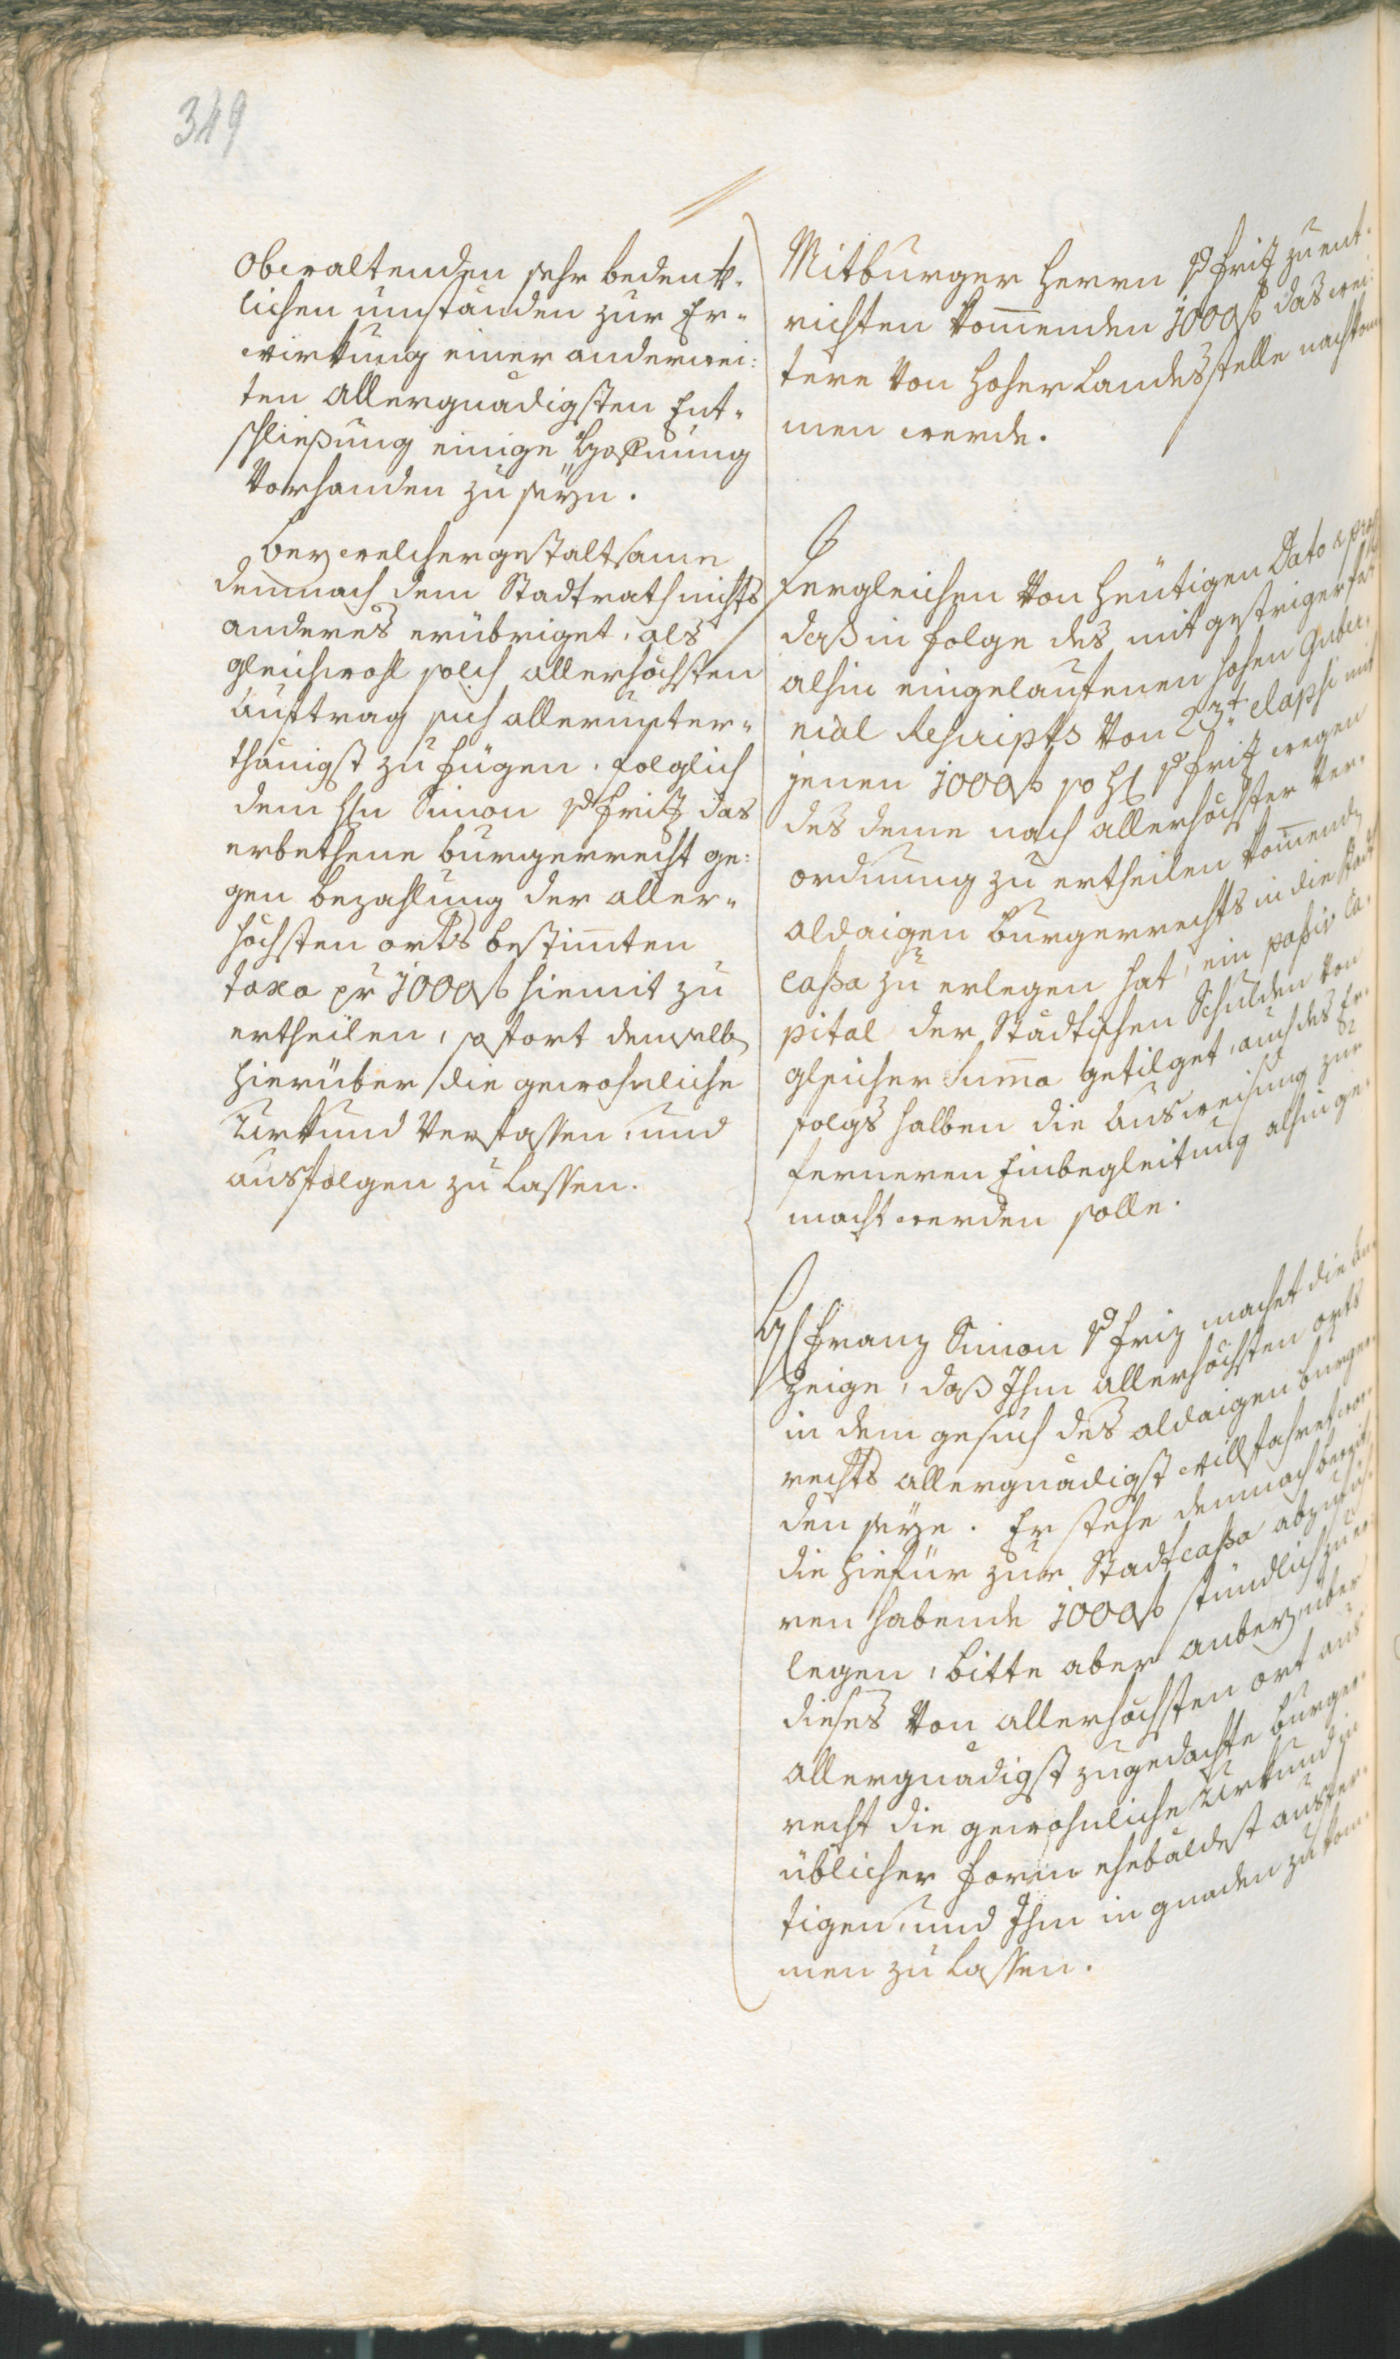 349
obwaltenden sehr bedenk„
lichen umständen zur Er„
wirkung einer anderwei:
ten Allergnädigsten Ent„
schließung einige Hoffnung
Vorhanden zu seÿn.
beÿ welcher gestaltsame
demnach dem Stadtrath nichts
anderes erübriget, als
gleichwohl solch allerhöchsten
Auftrag sich allerunter„
thänigst zu fügen. folglich
dem Hn Simon Pfritz das
erbethene burgerrecht ge:
gen bezahlung der aller„
höchsten orths bestimten
taxa pr 1000f hiemit zu
ertheilen, sofort demselb
hierüber die gewohnliche
Urkund Verfassen, und
ausfolgen zu lassen.
Mitburger Herrn Pfritz zu ent„
richten komenden 1000f das wei:
tere Von hoher Landesstelle nachkom
men werde.
Dergleichen Von heutigen Dato
daß in folge des mit gestriger
alhin eingelaufenen hohen Guber„
nial Rescripts Von 23t elapsi mit
jenen 1000f so H Pfritz wegen
des deme nach allerhöchster Ver„
ordnung zu ertheilen komend
aldaigen burgerrechts in die Stadt
cassa zu erlegen hat, ein passiv Ca„
pital der Städtischen Schulden Von
gleicher Suma getilget, auch des Er„
folgs halben die Ausweisung zur
ferneren Einbegleitung alhin ge„
macht werden solle.
H Franz Simon Pfriz machet die An„
zeige, daß Ihm allerhöchsten orts
in dem gesuch des aldaigen burger„
rechts allergnädigst willfahret wor„
den seÿe. Er stehe demnach bereit
die hiefür zur Stadtcassa abzufüh„
ren habende 1000f stündlich zu er„
legen, bitte aber anbeÿ über
dieses Von allerhöchsten ort aus
allergnädigst zugedachte burger„
recht die gewohnliche Urkund in
üblicher form ehebäldest ausfer„
tigen, und Ihm in gnaden zu kom„
men zu lassen.